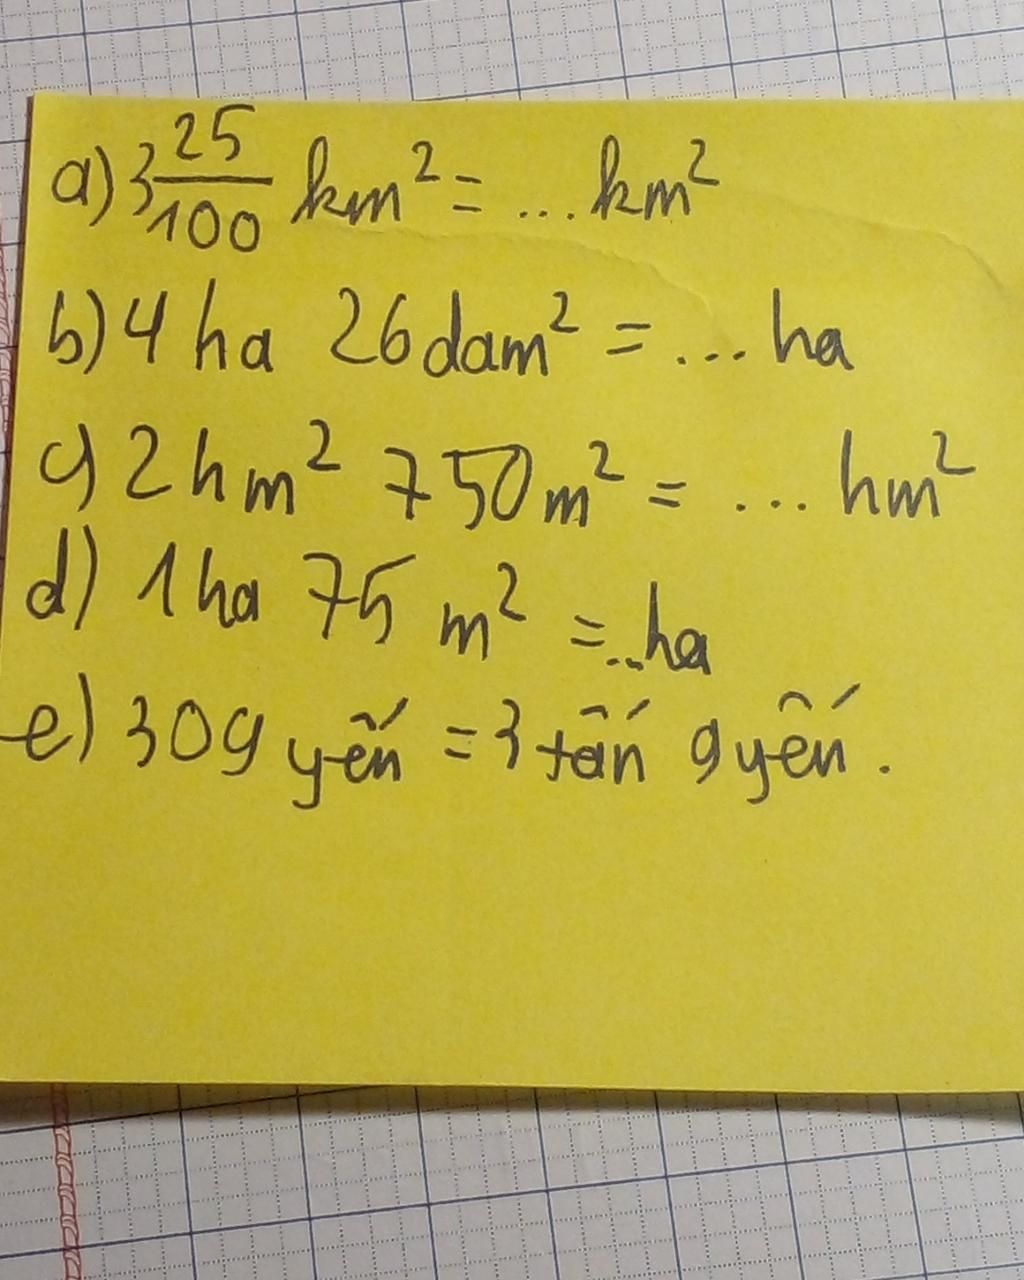 a) 3 25/100 km² = ... km²
b) 4 ha 26 dam² = ... ha
c) 2 hm² 750 m² = ... hm²
d) 1 ha 75 m² = .. ha
e) 309 yến = 3 tấn 9 yến.